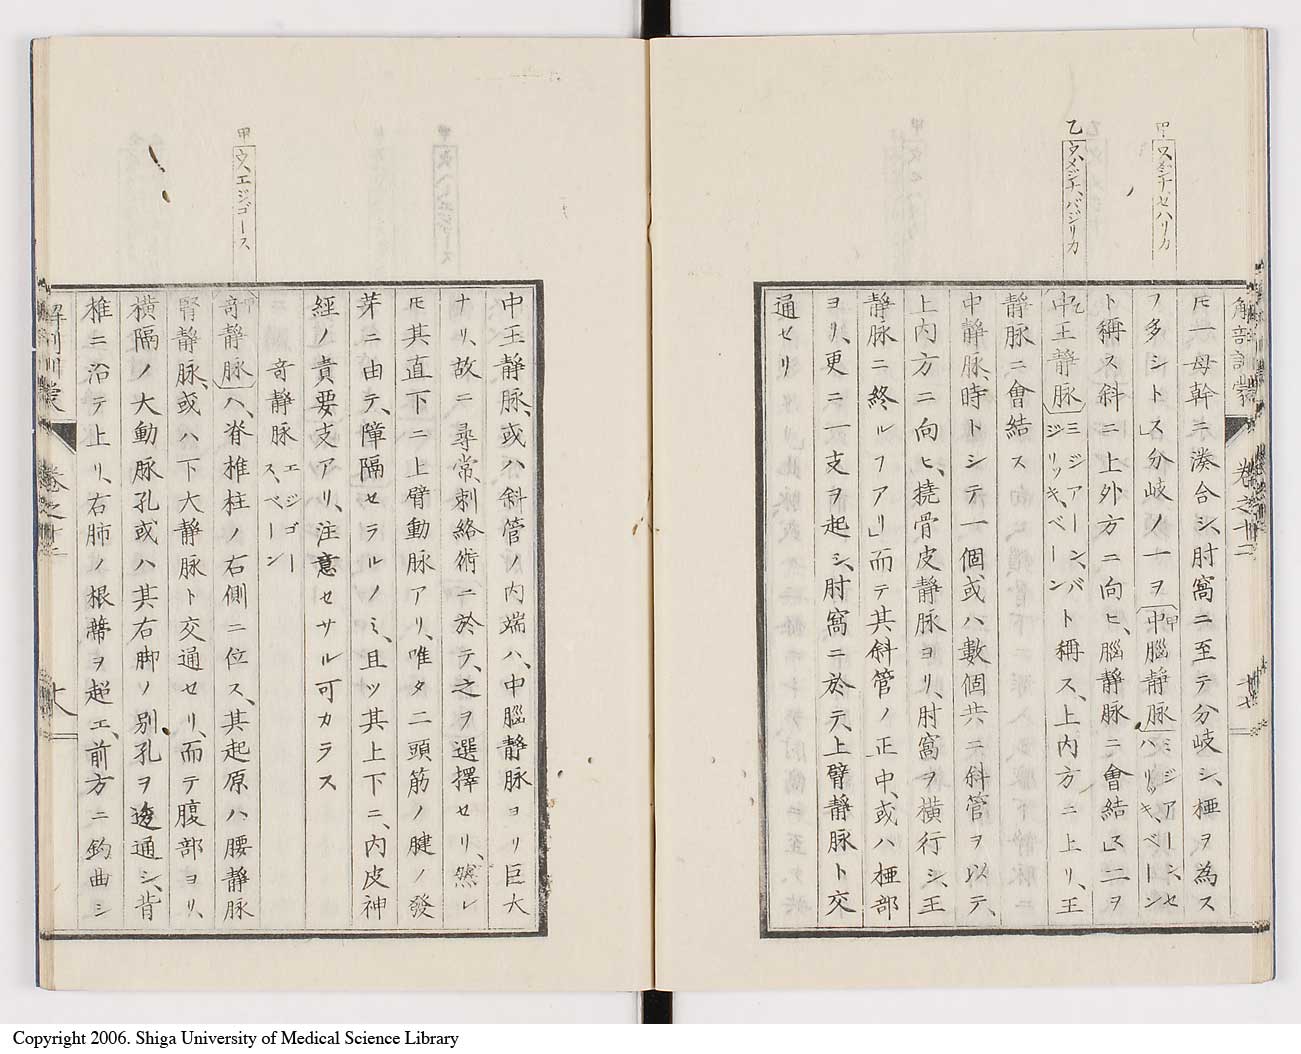 甲 ワスメシナ、セハリカ
乙 ウスメシナ、バジリカ
解剖訓蒙 卷之十二 十七
𪜈一母幹ニ湊合シ、肘窩ニ至テ分岐シ、椏ヲ為ス
ノ多シトス」分岐ノ一ヲ甲中腦靜脈ミジアーン、セハリッキ、ベーン
ト稱ス斜ニ上外方ニ向ヒ、腦靜脈ニ會結ス」二ヲ
乙中王靜脈ミジアーン、バジリッキ、ベーント稱ス、上内方ニ上リ、王
靜脈ニ會結ス
中靜脈、時トシテ一個、或ハ數個共ニ斜管ヲ以テ、
上内方ニ向ヒ、撓骨皮靜脈ヨリ、肘窩ヲ橫行シ、王
靜脈ニ終ルフアリ」而テ其斜管ノ正中、或ハ椏部
ヨリ、更ニ一支ヲ起シ、肘窩ニ於テ、上臂靜脈ト交
通セリ
甲 ウス、エジゴース
中王靜脈、或ハ斜管ノ内端ハ、中腦靜脈ヨリ巨大
ナリ、故ニ尋常、刺絡術ニ於テ、之ヲ選擇セリ、然レ
𪜈其直下ニ上臂動脈アリ、唯タ二頭筋ノ腱ノ發
芽ニ由テ、障隔セラルノミ、且ツ其上下ニ、内皮神
經ノ貴要支アリ、注意セサル可カラス
奇靜脈 エジゴース、ベーン
甲奇靜脈ハ、脊椎柱ノ右側ニ位ス、其起原ハ腰靜脈
腎靜脈、或ハ下大靜脈ト交通セリ、而テ腹部ヨリ、
橫隔ノ大動脈孔或ハ其右脚ノ別孔ヲ逡通シ、背
椎ニ沿テ上リ、右肺ノ根蔕ヲ超エ、前方ニ鈎曲シ
解剖訓蒙 卷之十二
Copyright 2006. Shiga University of Medical Science Library